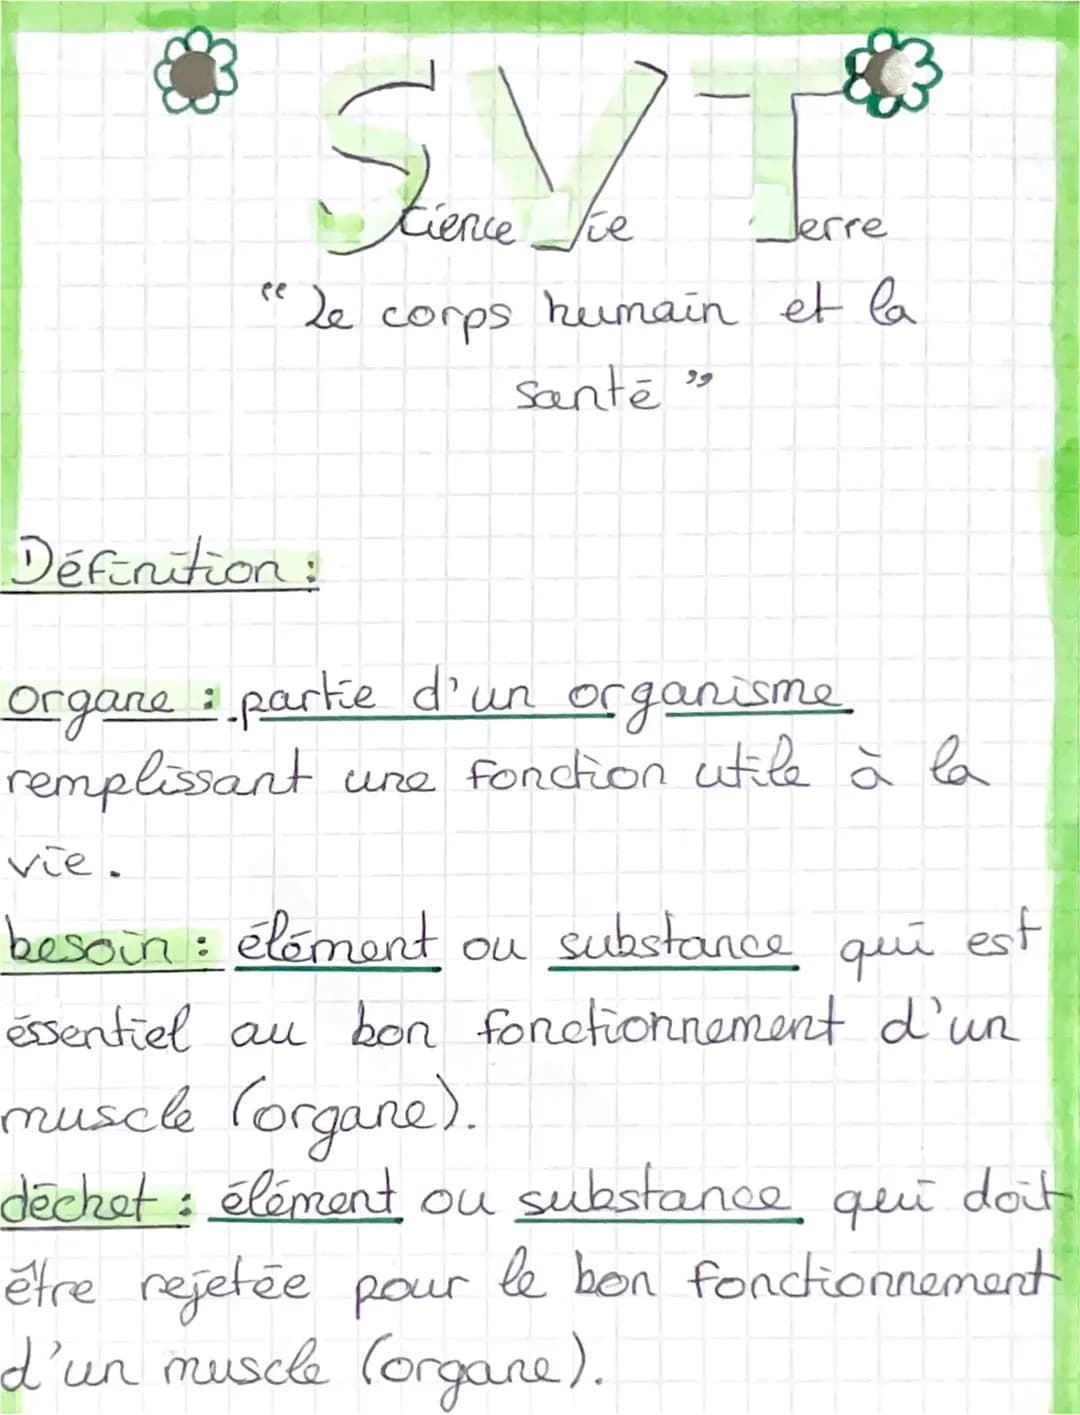 SVT
Science Vie Terre
“ Le corps humain et la
santé ”
Définition :
organe : partie d'un organisme
remplissant une fonction utile à la
vie.
besoin : élément ou substance qui est
éssentiel au bon fonctionnement d'un
muscle (organe).
déchet : élément ou substance qui doit
être rejetée pour le bon fonctionnement
d'un muscle (organe).